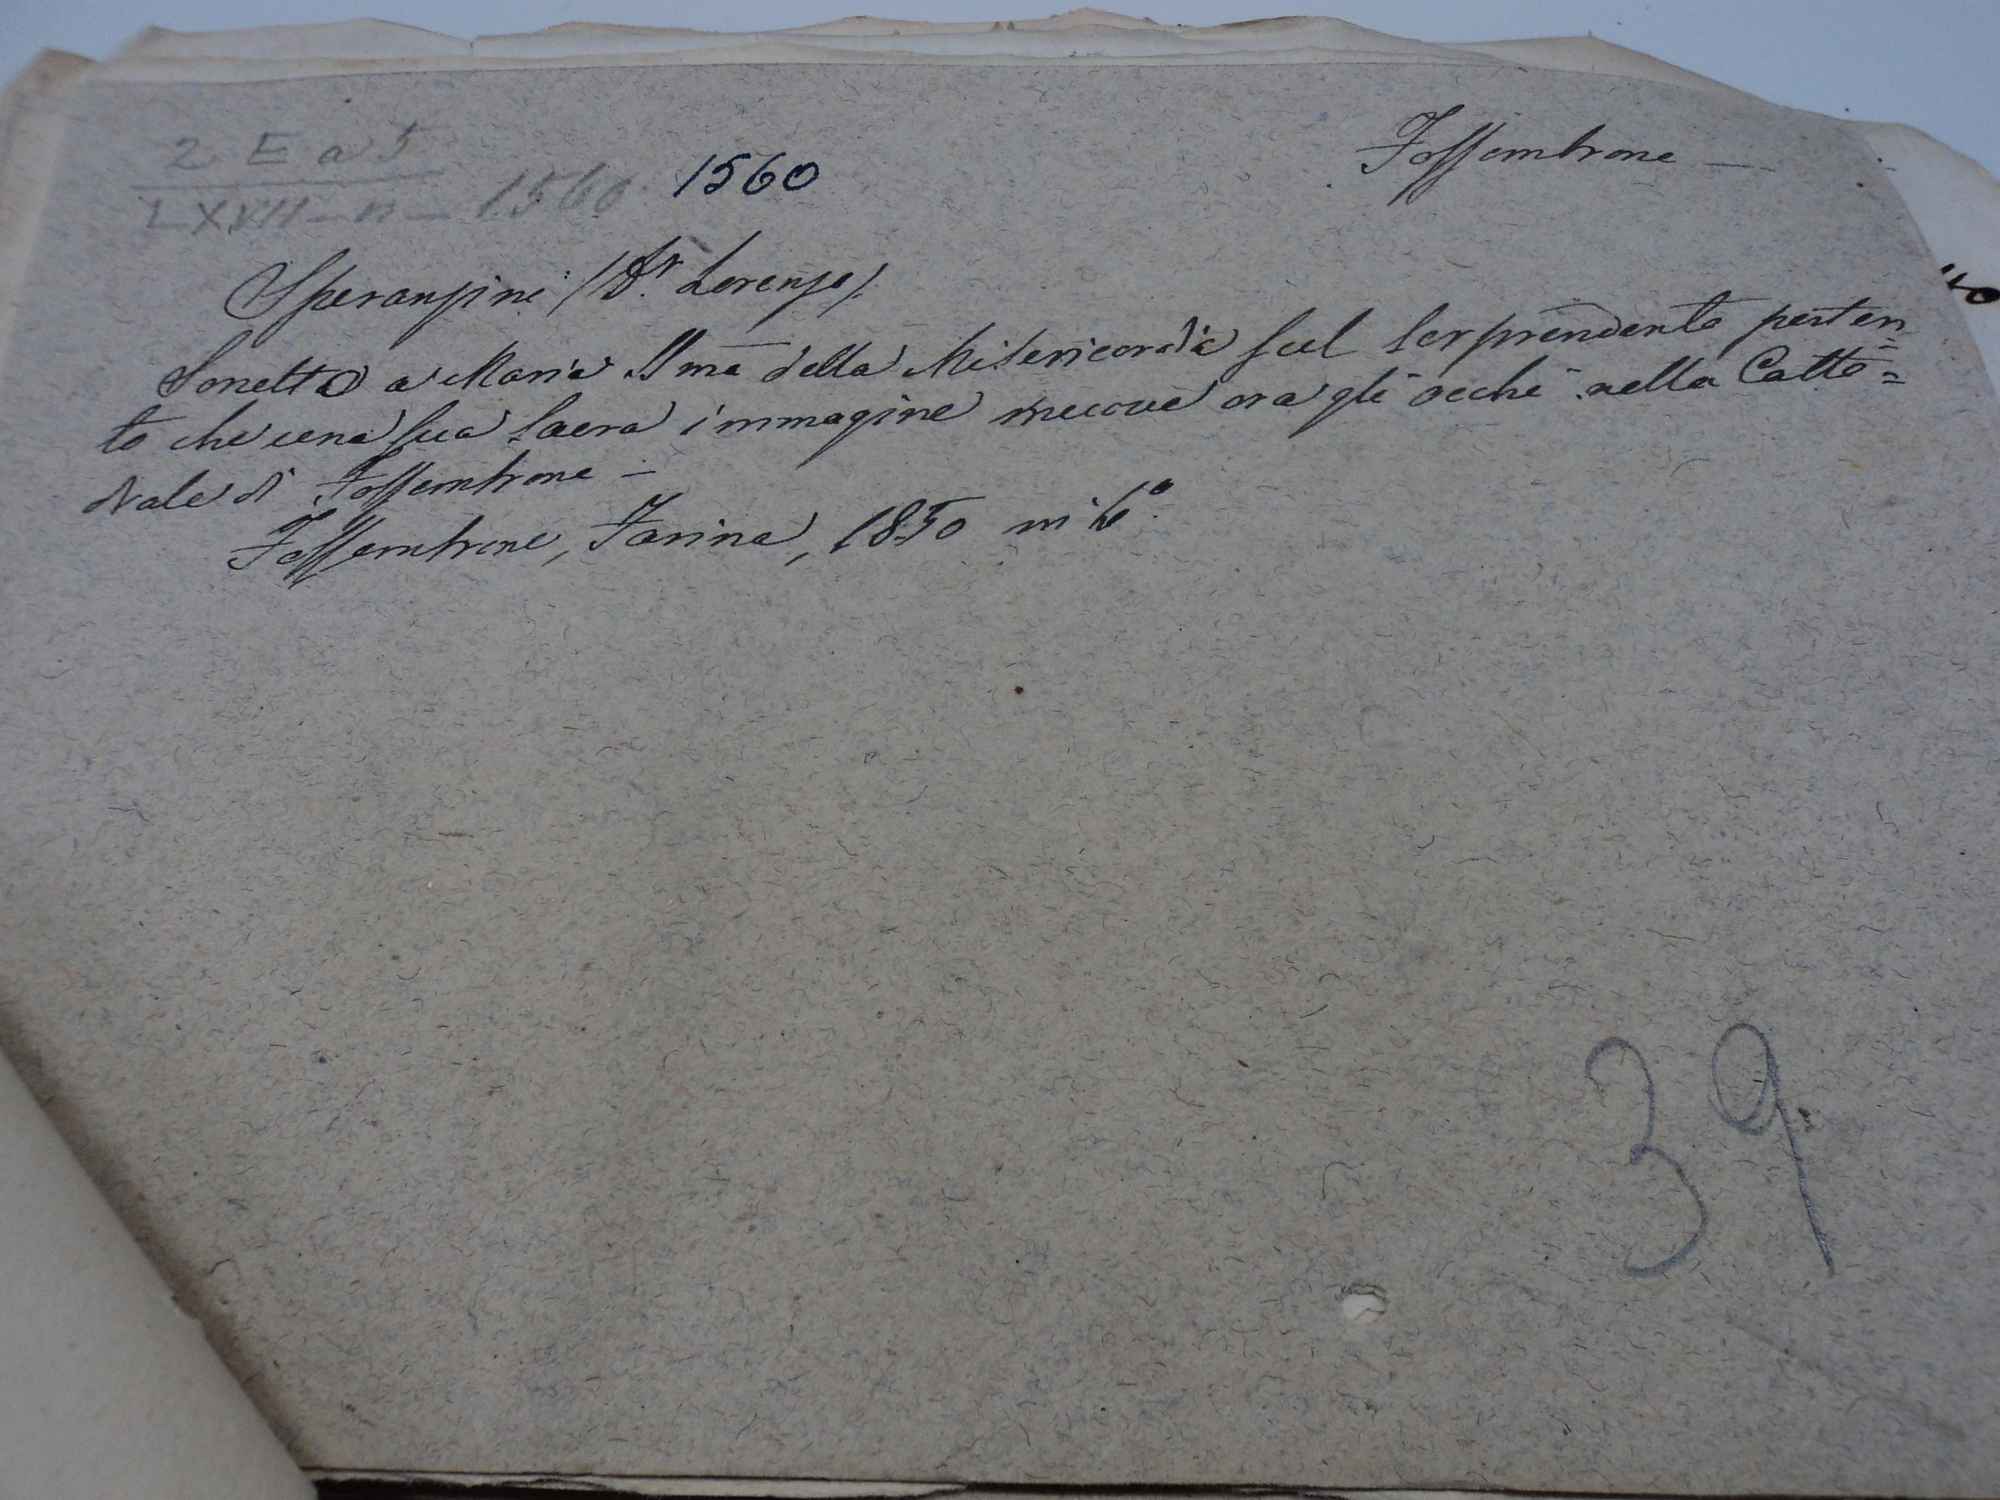 2 E a 5
LXVII - n - 1560 1560
Fossombrone —
Speranzini (Dr. Lorenzo).
Sonetto a Maria SSma della Misericordia sul sorprendente porten=
to che una sua sacra immagine muove ora gli occhi nella Catte=
drale di Fossombrone —
Fossombrone, Farina, 1850 in 6°.
39